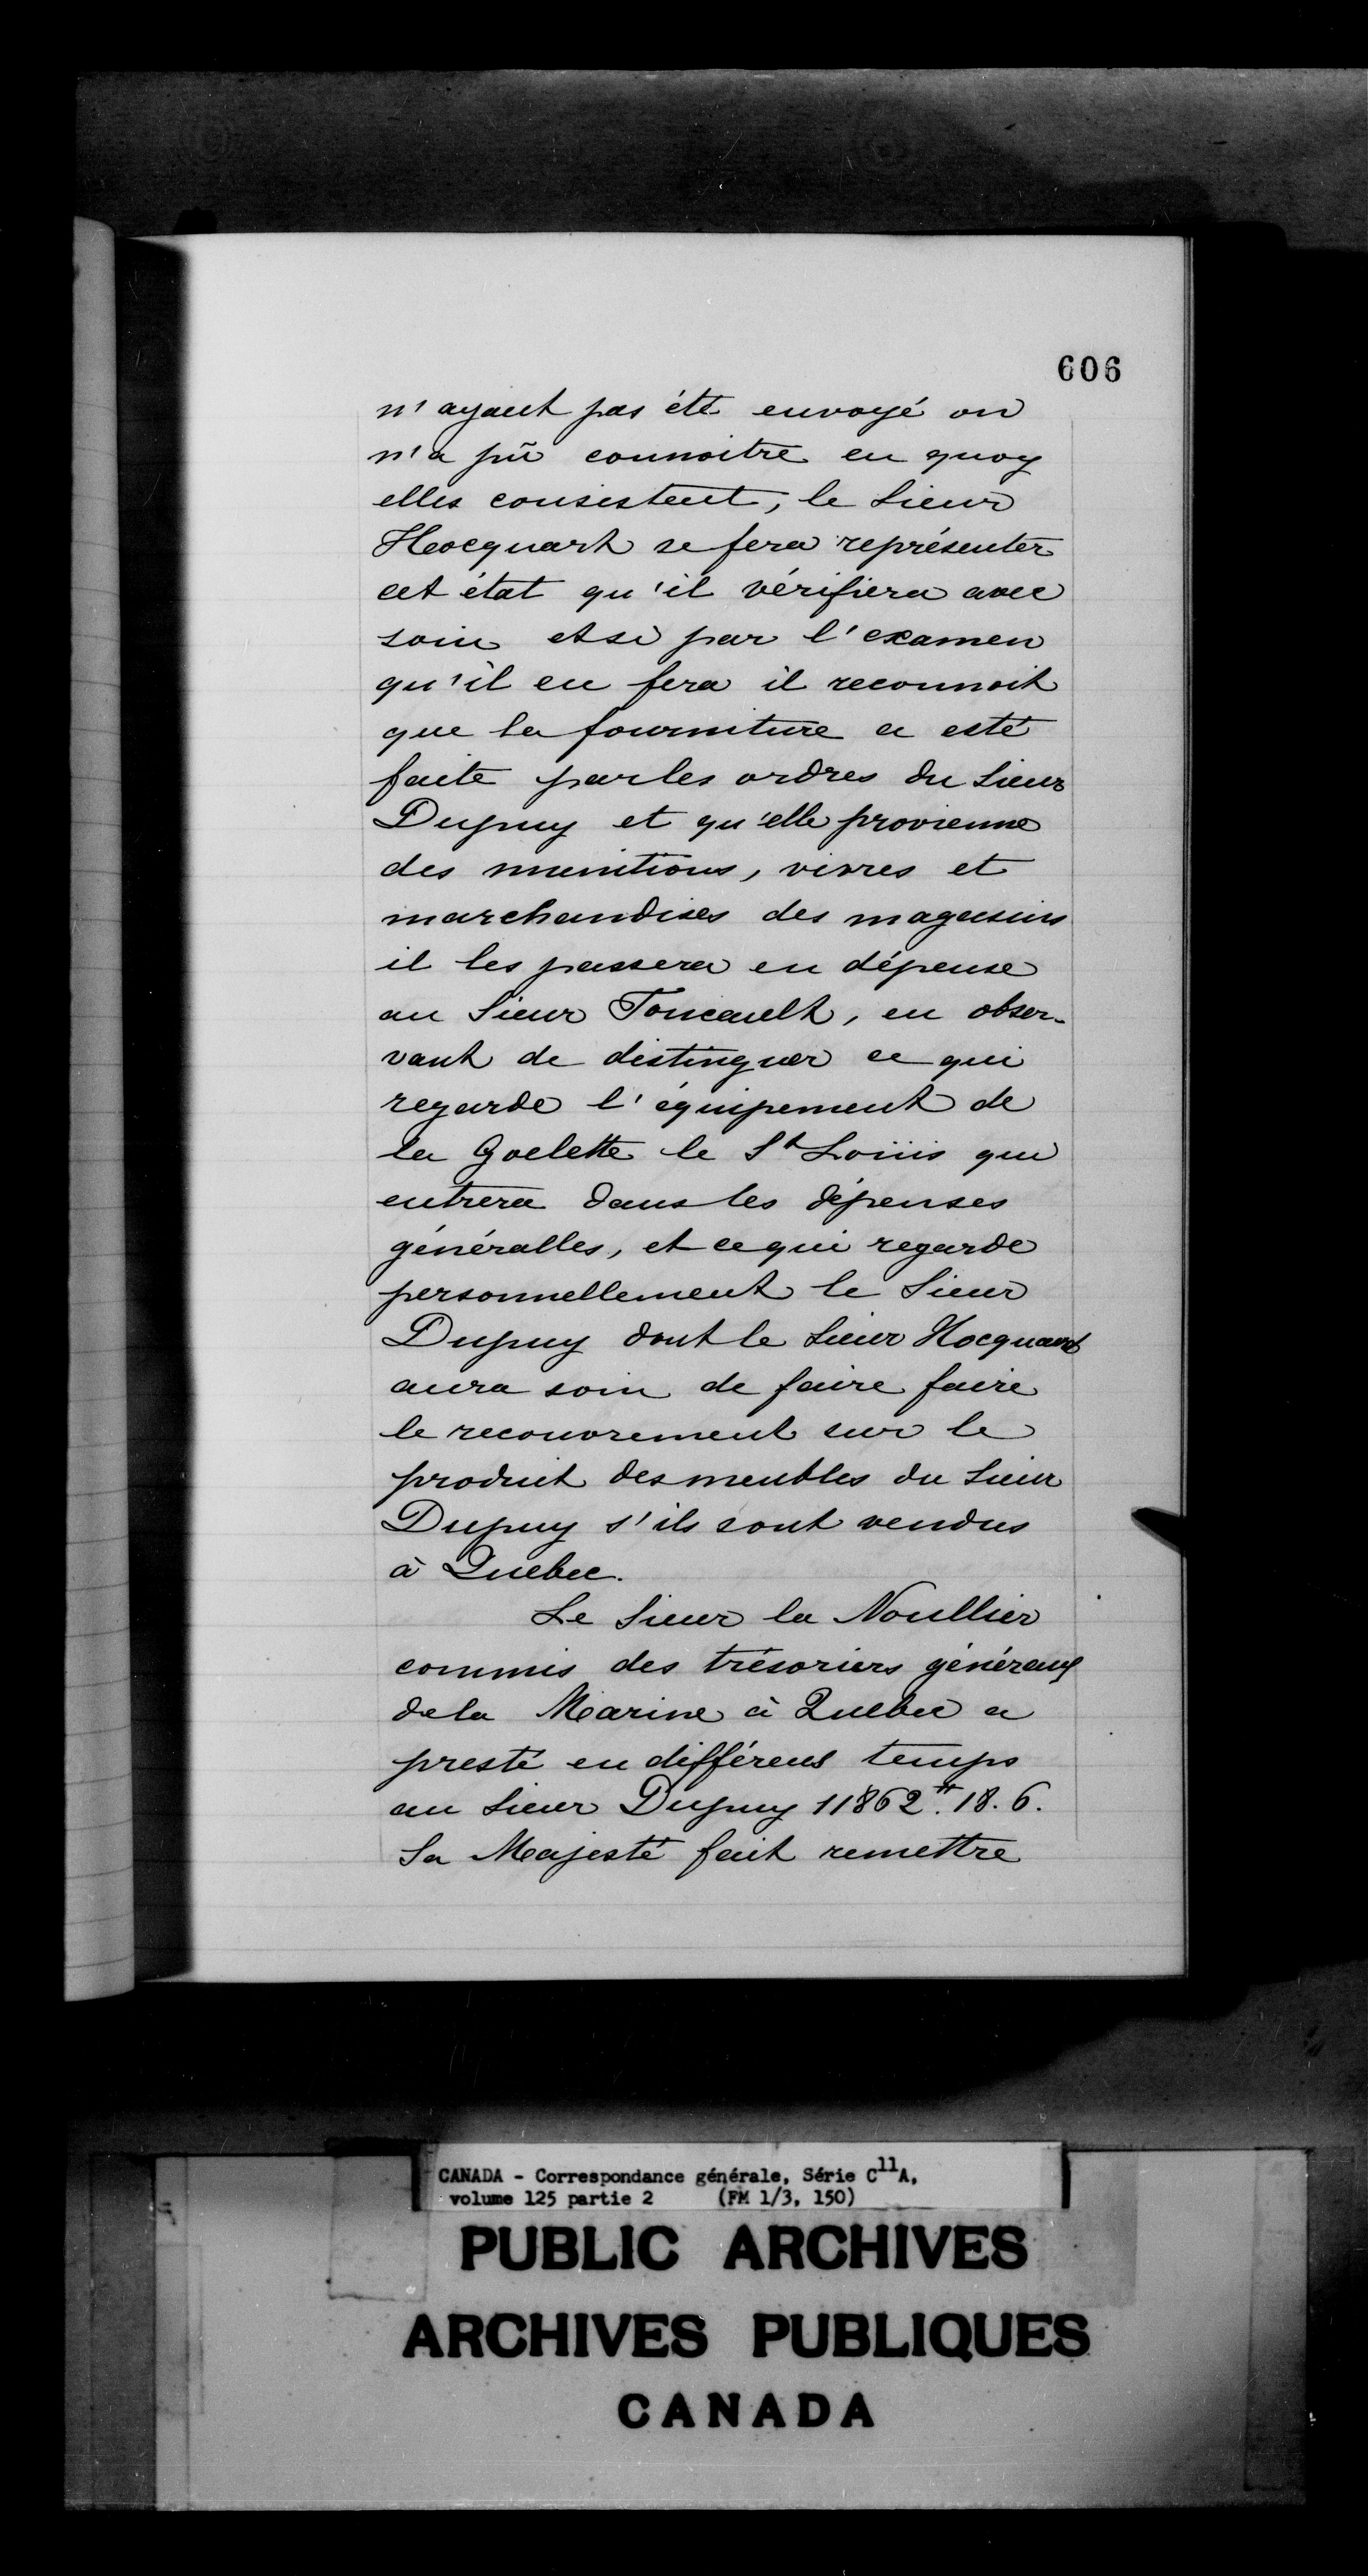 606
n'ayant pas été envoyé on
n'a pû connoitre en quoy
elles consistent, le Sieur
Hocquart se fera représenter
cet état qu'il vérifiera avec
soin et si par l'examen
qu'il en fera il reconnoit
que la fourniture a esté
faite par les ordres du Sieur
Dupuy et qu'elle provienne
des munitions, vivres et
marchandises des magasins
il les passera en dépense
au Sieur Foucault, en obser-
vant de distinguer ce qui
regarde l'équipement de
la Goelette le St Loüis qui
entrera dans les dépenses
généralles, et ce qui regarde
personnellement le Sieur
Dupuy dont le Sieur Hocquart
aura soin de faire faire
le recouvrement sur le
produit des meubles du Sieur
Dupuy s'ils sont vendus
à Quebec.
Le Sieur la Noullier
commis des trésoriers généraux
de la Marine à Quebec a
presté en différens temps
au Sieur Dupuy 11862.# 18. 6.
Sa Majesté fait remettre
CANADA - Correspondance générale, Série C11A,
volume 125 partie 2 (FM 1/3, 150)
PUBLIC ARCHIVES
ARCHIVES PUBLIQUES
CANADA